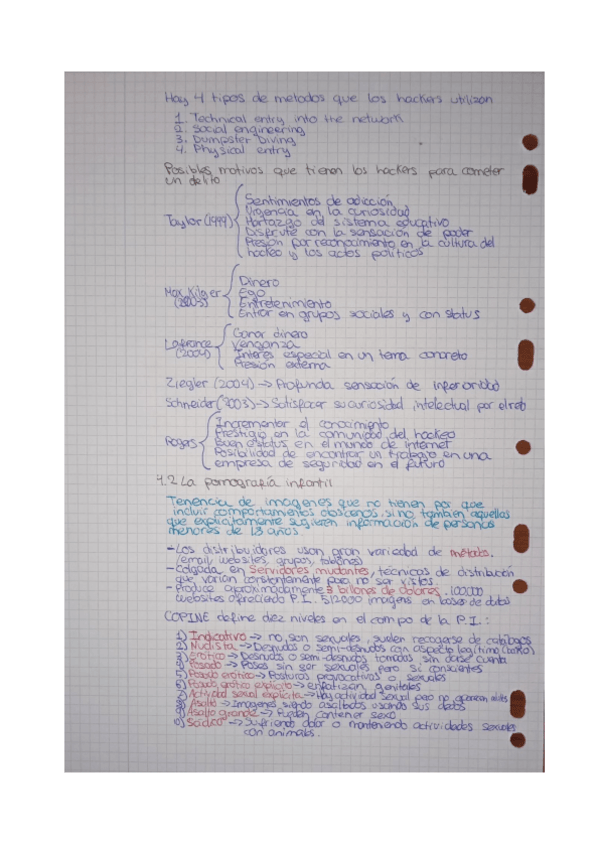 Hay 4 tipos de metodos que los hackers utilizan
1. Technical entry into the network
2. Social engineering
3. Dumpster Diving
4. Physical entry
Posibles motivos que tienen los hackers para cometer
un delito
Taylor (1999)
Sentimientos de adicción
Urgencia en la curiosidad
Hartazgo del sistema educativo
Disfrute con la sensación de poder
Presión por reconocimiento en la cultura del
hackeo y los actos políticos
Max Kilger
(2005)
Dinero
Ego
Entretenimiento
Entrar en grupos sociales y con status
Lafrance
(2004)
Ganar dinero
Venganza
Interés especial en un tema concreto
Presión externa
Ziegler (2004) → Profunda sensación de inferioridad
Schneider (2003) → Satisfacer su curiosidad intelectual por el reto
Rogers
Incrementar el conocimiento
Prestigio en la comunidad del hackeo
Buen estatus en el mundo de internet
Posibilidad de encontrar un trabajo en una
empresa de seguridad en el futuro
4.2 La pornografía infantil
Tenencia de imagenes que no tienen por que
incluir comportamientos obscenos, sino tambien aquellas
que explicitamente sugieren información de personas
menores de 13 años.
- Los distribuidores usan gran variedad de métodos.
(email, websites, grupos, tablones)
- Colgada en servidores mudantes, técnicas de distribución
que varian constantemente para no ser vistos.
- Produce aproximadamente 3 billones de dolares. 100000
websites ofreciendo P.I. 512000 imagens en bases de datos
COPINE define diez niveles en el campo de la P.I.:
1) Indicativo → no son sexuales, suelen recogerse de catálogos
2) Nudista → Desnudos o semi-desnudos con aspecto legítimo (baño)
3) Erótico → Desnudos o semi-desnudos tomados sin darse cuenta
4) Posado → Poses sin ser sexuales pero si conscientes
5) Posado erótico → Posturas provocativas o sexuales
6) Posado erótico explícito → enfatizan genitales
7) Actividad sexual explícita → Hay actividad sexual pero no aparecen adultos
8) Asalto → Imagenes siendo asaltados usando sus dedos
9) Asalto grande → Pueden contener sexo
Sádico → Sufriendo dolor o manteniendo actividades sexuales
con animales.